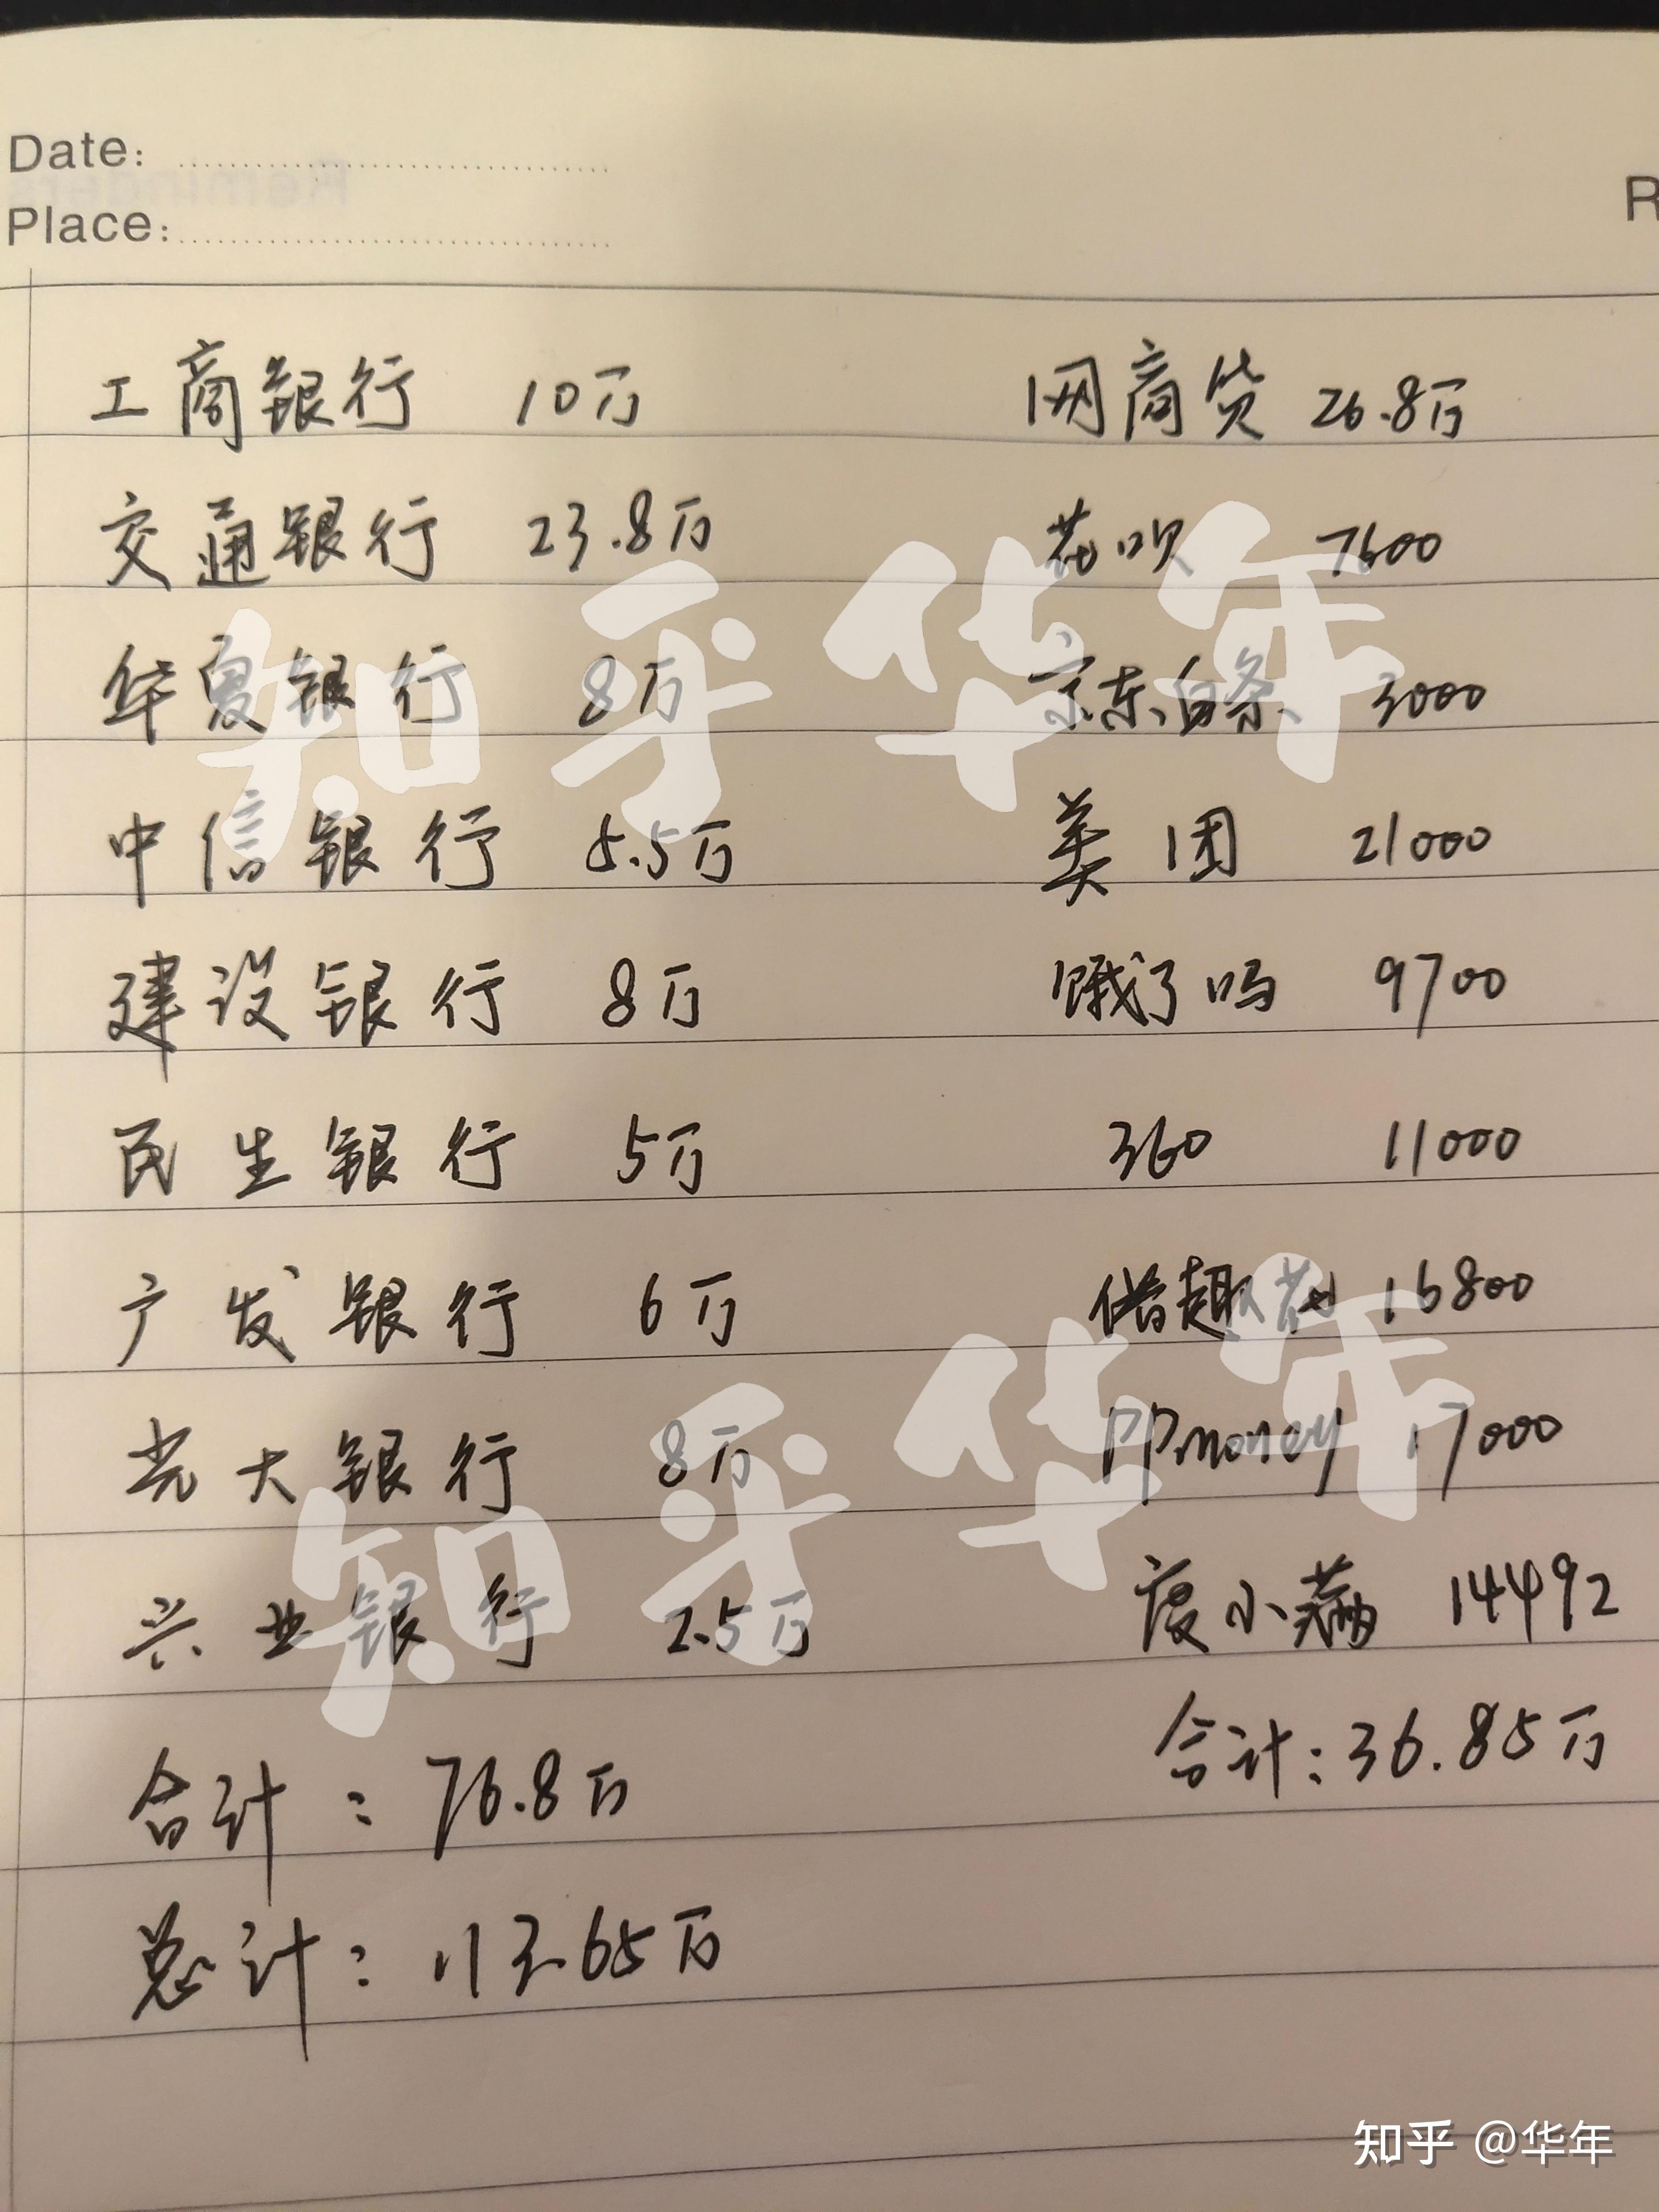 Date:
Place:
R
工商银行 10万 网商贷 26.8万
交通银行 23.8万 花呗 7600
华夏银行 8万 京东白条 3000
中信银行 5.5万 美团 21000
建设银行 8万 饿了吗 9700
民生银行 5万 360 11000
广发银行 6万 借趣花 16800
光大银行 8万 PPmoney 17000
兴业银行 2.5万 度小满 14492
合计:76.8万 合计:36.85万
总计:113.65万
知乎华年
知乎华年
知乎 @华年